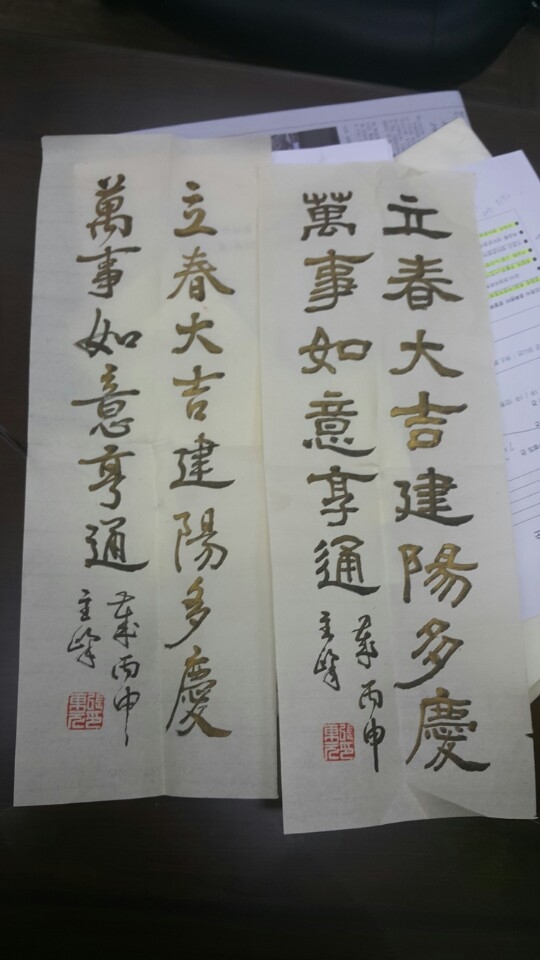 立春大吉建陽多慶
萬事如意亨通
歲丙申
立春大吉建陽多慶
萬事如意亨通
歲丙申